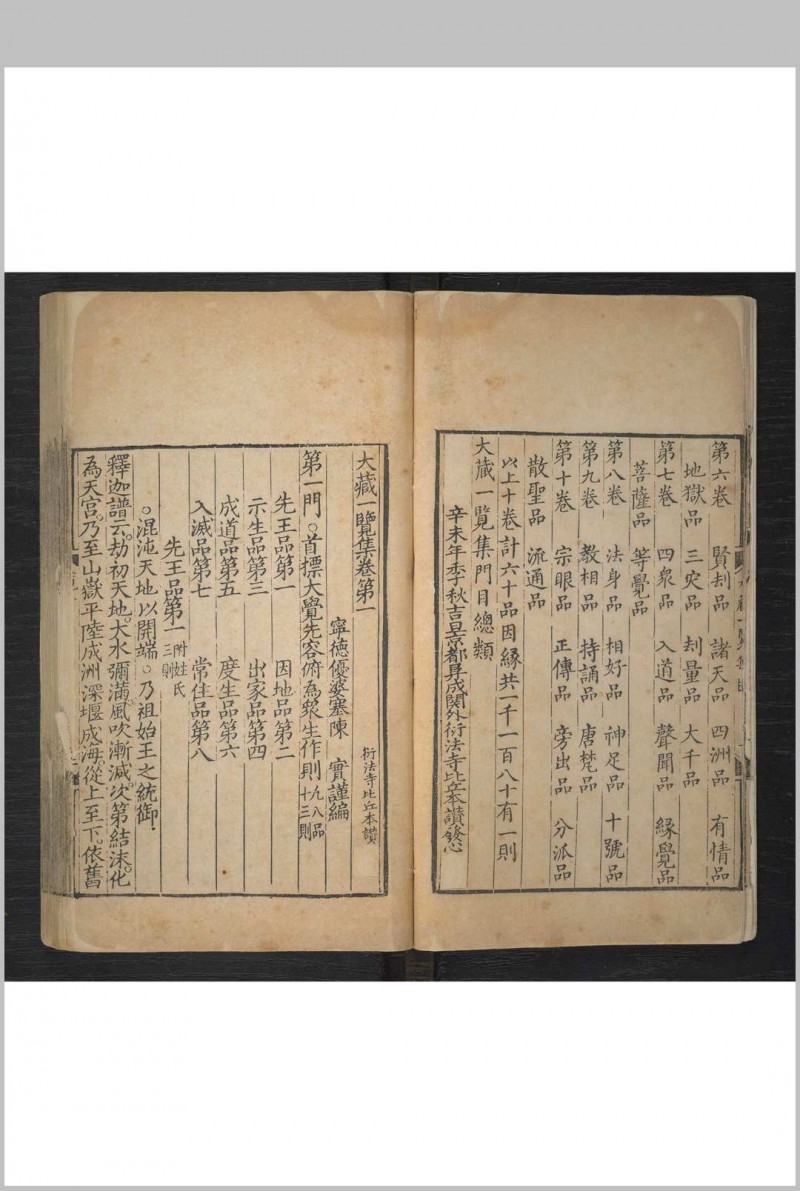 第六卷　賢刦品　諸天品　四洲品　有情品
地獄品　三灾品　刦量品　大千品
第七卷　四衆品　入道品　聲聞品　緣覺品
菩薩品　等覺品
第八卷　法身品　相好品　神足品　十號品
第九卷　教相品　持誦品　唐梵品
第十卷　宗眼品　正傳品　旁出品　分派品
散聖品　流通品
以上十卷計六十品因緣共一千一百八十有一則
大藏一覽集門目總類
辛未年季秋吉旦京都阜成関外衍法寺比丘本讚發心
大藏一覽集卷第一
衍法寺比丘本讚
寧德優婆塞陳　實謹編
第一門。首標大覺先容俯為衆生作則八品九十三則
先王品第一　因地品第二
示生品第三　出家品第四
成道品第五　度生品第六
入滅品第七　常住品第八
先王品第一附姓氏三則
○混沌天地以開端。乃祖始王之統御。
釋迦譜云。劫初天地。大水彌滿。風吹漸減。次第結沫。化
為天宮。乃至山嶽平陸成洲深堰成海。從上至下。依舊